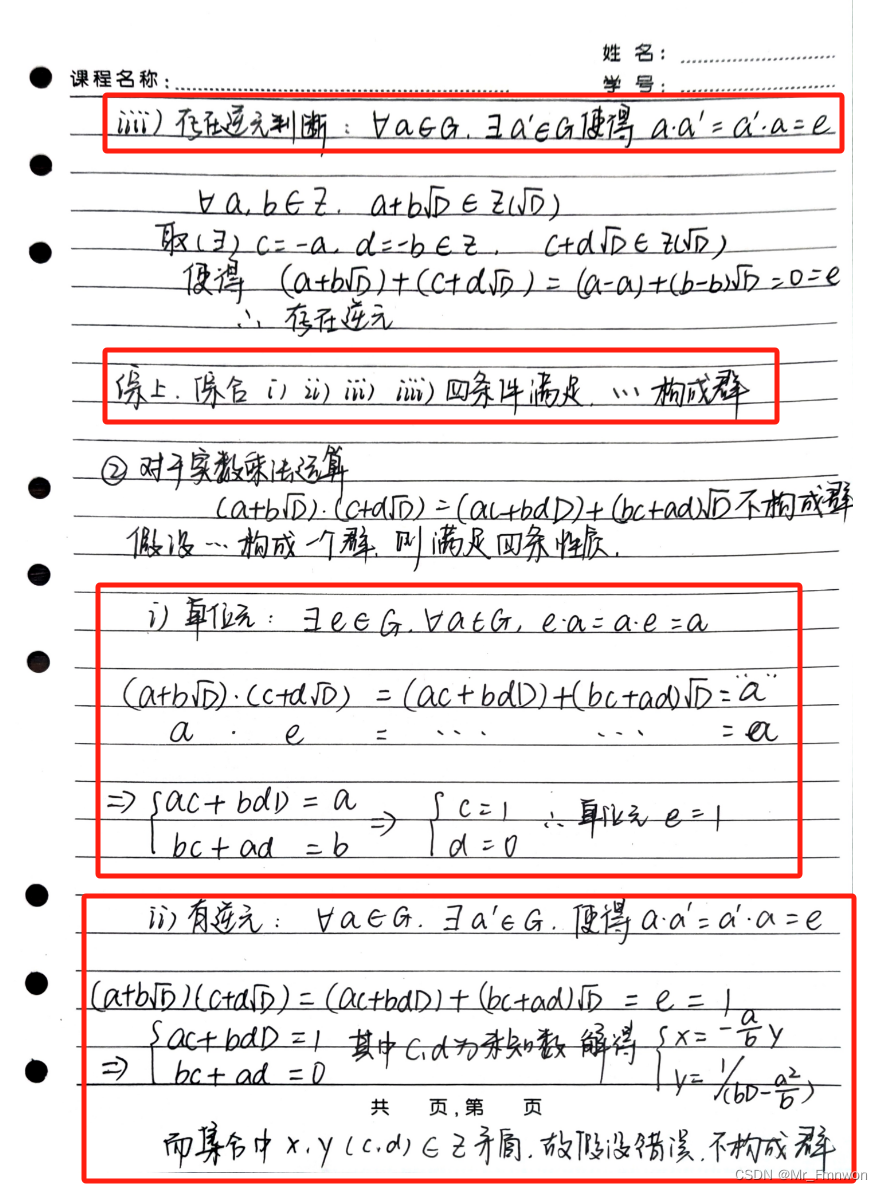 姓 名：
课程名称：
学 号：
iiii) 存在逆元判断：∀a∈G. ∃a'∈G使得 a·a'=a'·a=e
∀a,b∈Z. a+b√D∈Z(√D)
取(∃) c=-a, d=-b∈Z, c+d√D∈Z(√D)
使得 (a+b√D)+(c+d√D)=(a-a)+(b-b)√D=0=e
∴ 存在逆元
综上. 综合 i) ii) iii) iiii) 四条件满足. … 构成群
② 对于实数乘法运算
(a+b√D)·(c+d√D)=(ac+bdD)+(bc+ad)√D 不构成群
假设…构成一个群, 则满足四条性质.
i) 单位元：∃e∈G, ∀a∈G, e·a=a·e=a
(a+b√D)·(c+d√D) =(ac+bdD)+(bc+ad)√D="a"
a · e = … … =a
⇒ { ac+bdD=a ⇒ { c=1 ∴ 单位元 e=1
bc+ad =b d=0
ii) 有逆元：∀a∈G. ∃a'∈G. 使得 a·a'=a'·a=e
(a+b√D)(c+d√D)=(ac+bdD)+(bc+ad)√D = e = 1
⇒ { ac+bdD=1 其中c,d为未知数 解得 { x=-a/b y
bc+ad =0 y=1/(bD-a²/b)
共 页,第 页
而集合中 x,y (c,d)∈Z 矛盾. 故假设错误. 不构成群
CSDN @Mr_Fmnwon